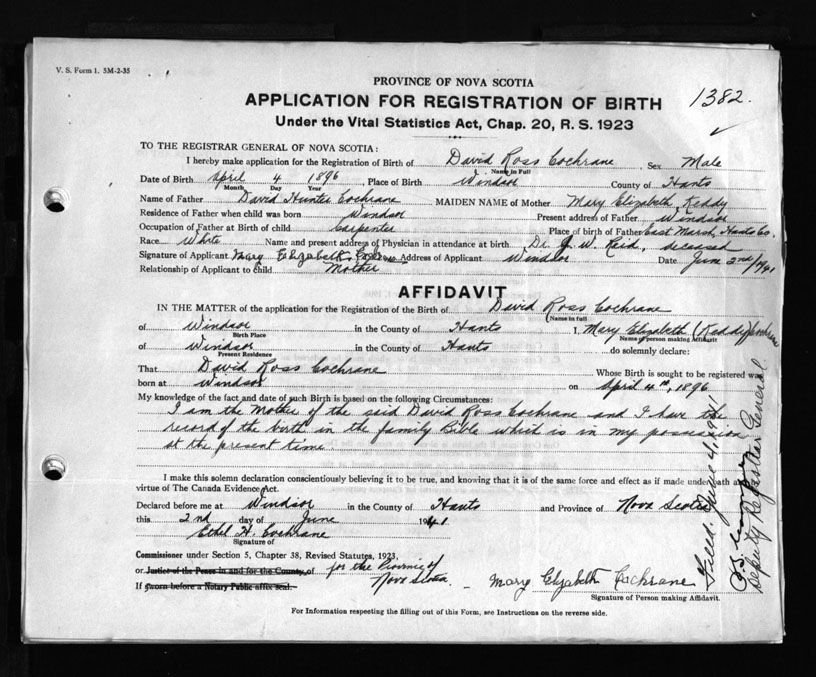 V. S. Form 1. 5M-2-35
PROVINCE OF NOVA SCOTIA
1382.
APPLICATION FOR REGISTRATION OF BIRTH
Under the Vital Statistics Act, Chap. 20, R. S. 1923
TO THE REGISTRAR GENERAL OF NOVA SCOTIA:
I hereby make application for the Registration of Birth of David Ross Cochrane, Sex Male
Name in Full
Date of Birth April 4 1896, Place of Birth Windsor County of Hants
Month Day Year
Name of Father David Hunter Cochrane MAIDEN NAME of Mother Mary Elizabeth Keddy
Residence of Father when child was born Windsor Present address of Father Windsor
Occupation of Father at Birth of child Carpenter Place of birth of Father East Marsh, Hants Co.
Race White Name and present address of Physician in attendance at birth Dr. J. W. Reid, deceased
Signature of Applicant Mary Elizabeth Address of Applicant Windsor Date June 2nd/1941
Relationship of Applicant to child Mother
AFFIDAVIT
IN THE MATTER of the application for the Registration of the Birth of David Ross Cochrane
(Name in full
of Windsor in the County of Hants I, Mary Elizabeth (Keddy) Cochrane
Birth Place Name of person making Affidavit
of Windsor in the County of Hants do solemnly declare:
Present Residence
That David Ross Cochrane Whose Birth is sought to be registered was
born at Windsor on April 4th, 1896
My knowledge of the fact and date of such Birth is based on the following Circumstances:
I am the Mother of the said David Ross Cochrane and I have the
record of the birth in the family Bible which is in my possession
at the present time.
I make this solemn declaration conscientiously believing it to be true, and knowing that it is of the same force and effect as if made under oath and
virtue of The Canada Evidence Act.
Declared before me at Windsor in the County of Hants and Province of Nova Scotia
this 2nd day of June 1941
Ethel H. Cochrane
Signature of
Commissioner under Section 5, Chapter 38, Revised Statutes, 1923,
or Justice of the Peace in and for the County of for the Province of
Nova Scotia.
If sworn before a Notary Public affix seal.
Mary Elizabeth Cochrane
Signature of Person making Affidavit.
For Information respecting the filling out of this Form, see Instructions on the reverse side.
Filed. June 4, 1941
Deputy Registrar General